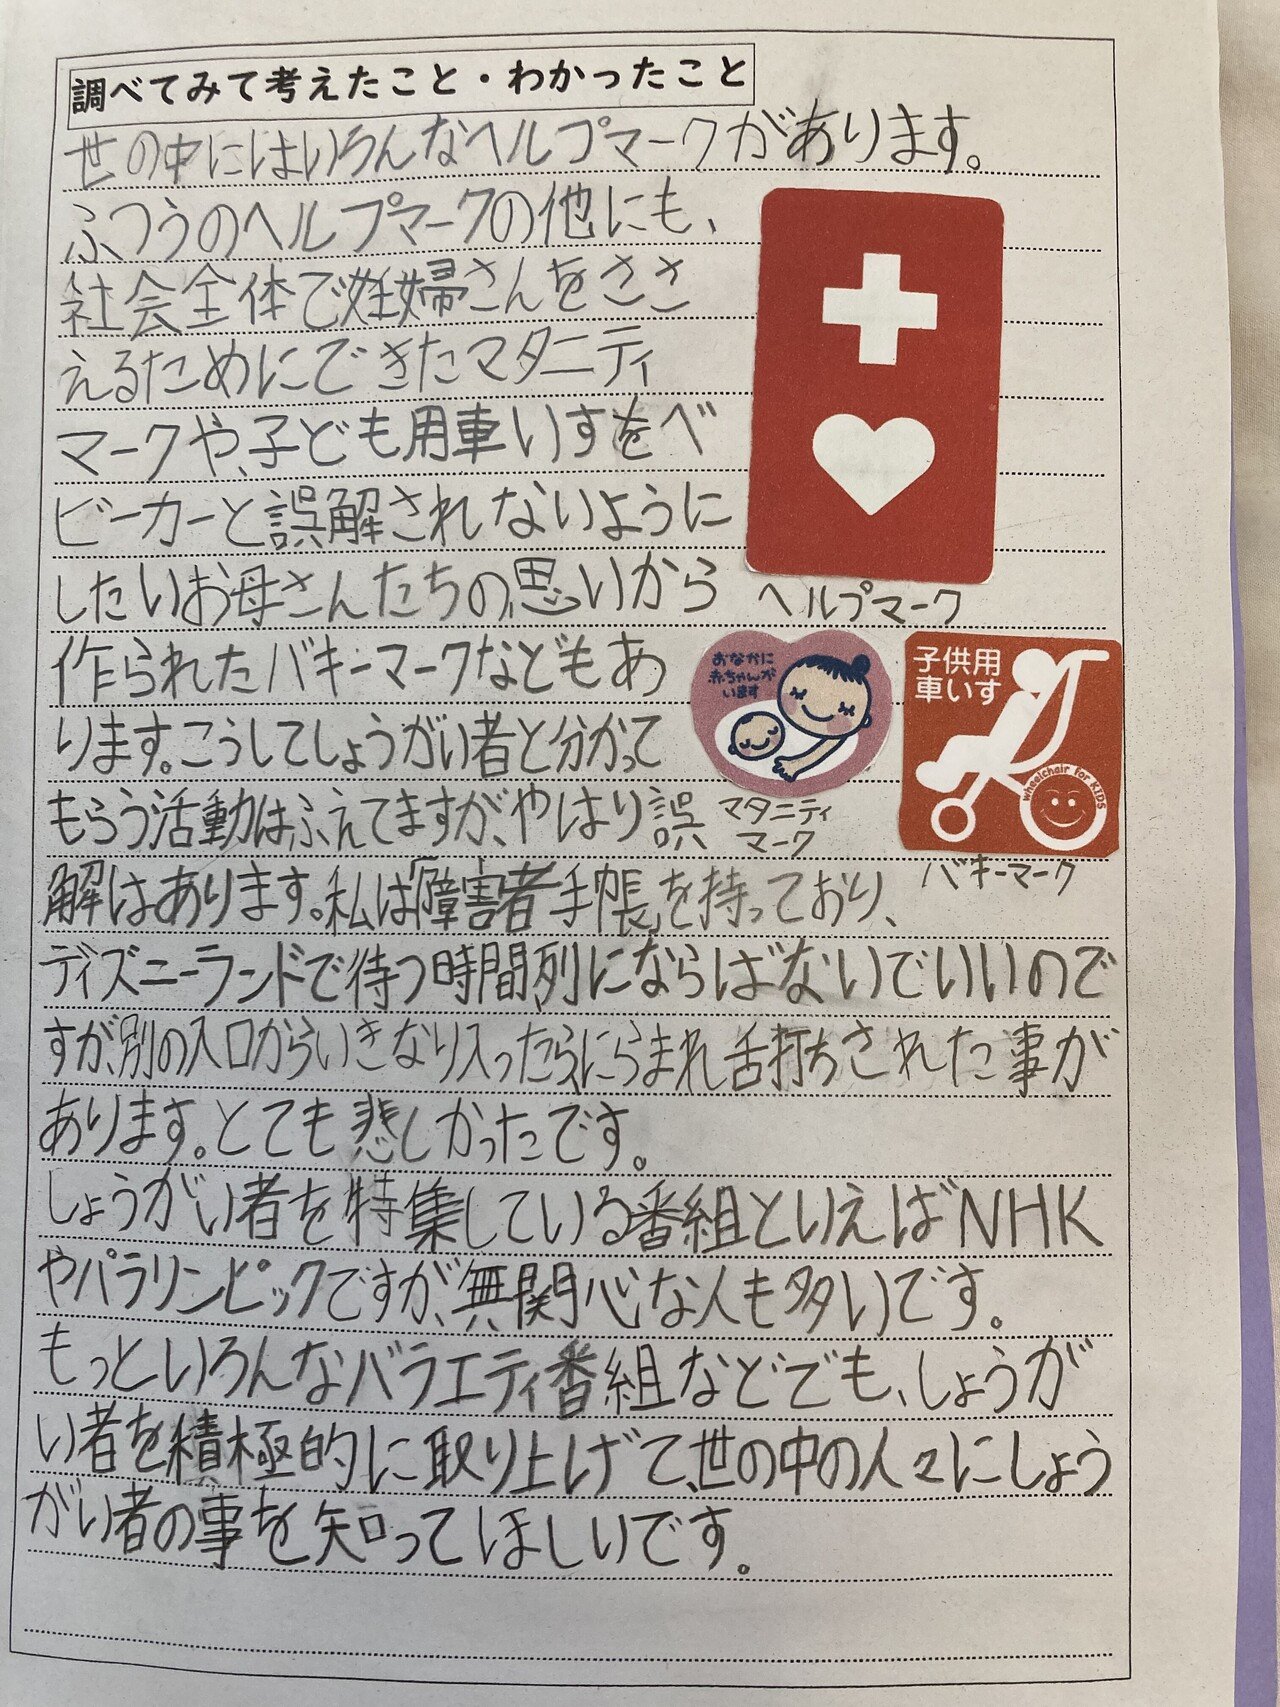 調べてみて考えたこと・わかったこと
世の中にはいろんなヘルプマークがあります。
ふつうのヘルプマークの他にも、
社会全体で妊婦さんをささ
えるためにできたマタニティ
マークや、子ども用車いすをベ
ビーカーと誤解されないように
したいお母さんたちの思いから
作られたバギーマークなどもあ
ります。こうしてしょうがい者と分かって
もらう活動はふえてますが、やはり誤
解はあります。私は「障害者手帳」を持っており、
ディズニーランドで待つ時間列にならばないでいいので
すが、別の入口からいきなり入ったらにらまれ舌打ちされた事が
あります。とても悲しかったです。
しょうがい者を特集している番組といえばNHK
やパラリンピックですが、無関心な人も多いです。
もっといろんなバラエティ番組などでも、しょうが
い者を積極的に取り上げて、世の中の人々にしょう
がい者の事を知ってほしいです。
ヘルプマーク
おなかに
赤ちゃんが
います
マタニティ
マーク
子供用
車いす
wheelchair for KIDS
バギーマーク